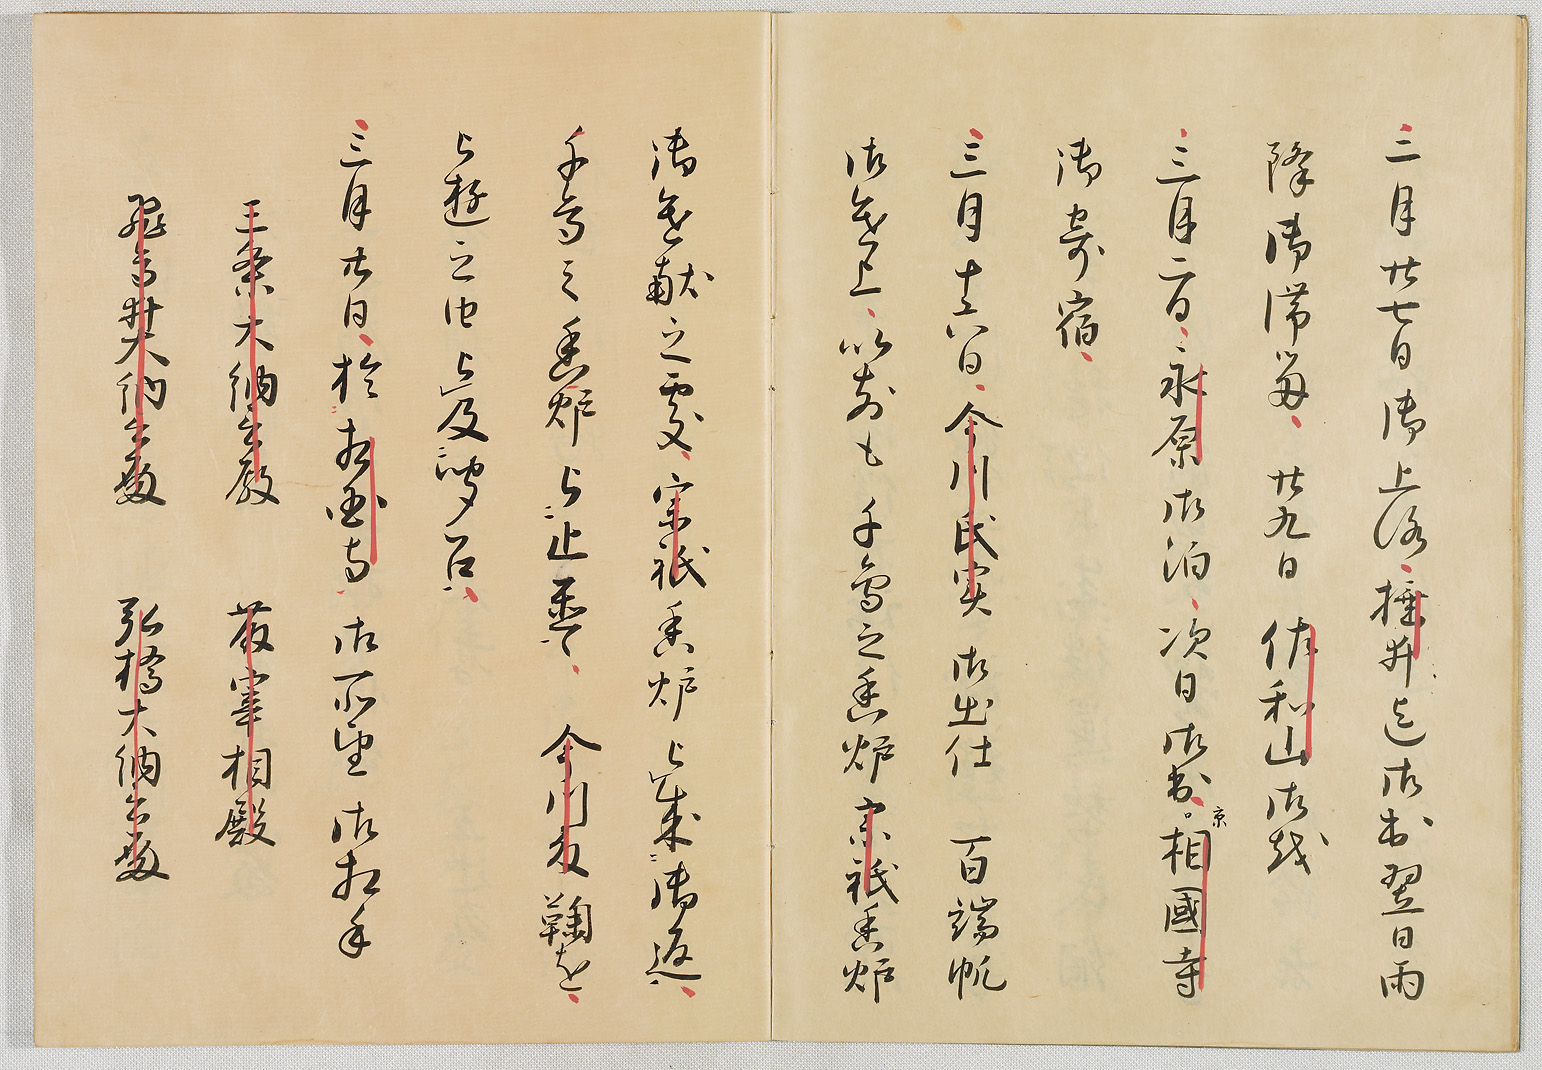 二月廿七日御上洛捶井迄御出翌日雨
降御滞留廿九日佐和山御越
三月二日永原御泊次日御出京相國寺
御寄宿
三月十六日今川氏実御出仕百端帆
御進上以前も千鳥之香炉宗祇香炉
御進献之處宗祇香炉被成御返
千鳥之香炉被止置今川殿鞠を
被遊之由被及聞食
三月廿日於相国寺御所望御相手
三条大納言殿　藤宰相殿
飛鳥井大納言殿　弘橋大納言殿